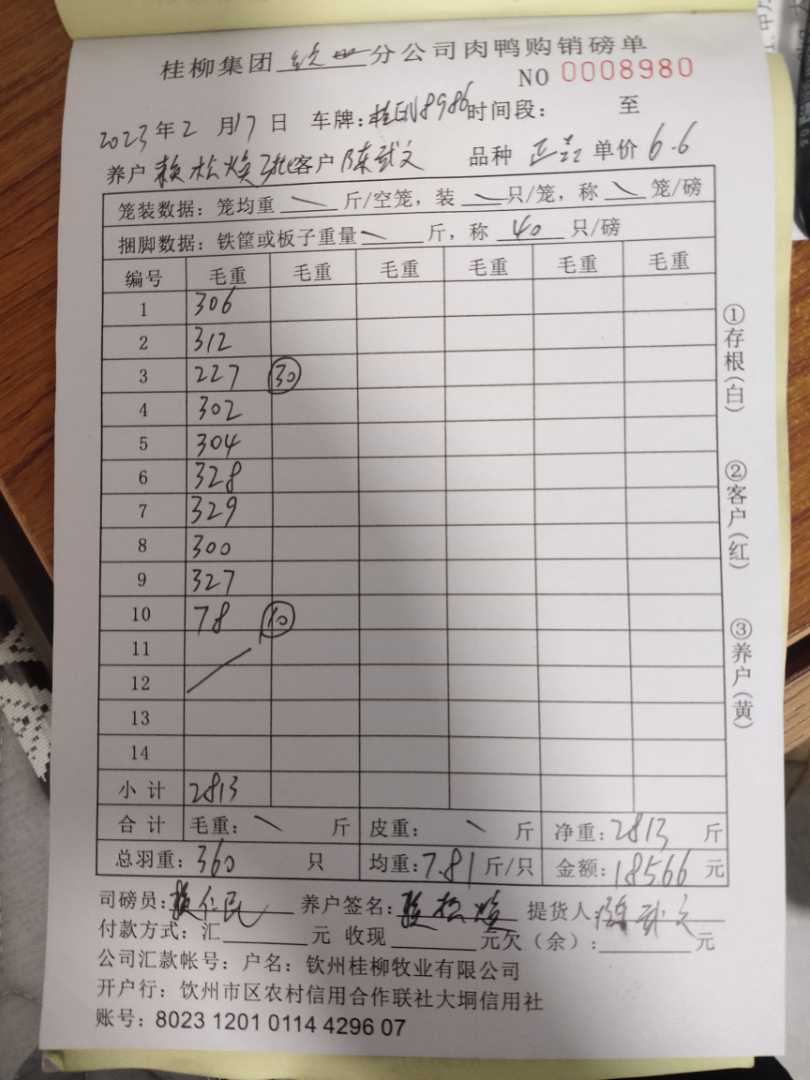 桂柳集团 钦州 分公司肉鸭购销磅单
NO 0008980
2023年2月17日 车牌:桂E 8986 时间段: 至
养户 赖松焕 客户 陈武文 品种 正品 单价 6.6
笼装数据:笼均重 \ 斤/空笼,装 \ 只/笼,称 \ 笼/磅
捆脚数据:铁筐或板子重量 \ 斤,称 40 只/磅
编号 毛重 毛重 毛重 毛重 毛重 毛重
1 306
2 312
3 227 30
4 302
5 304
6 328
7 329
8 300
9 327
10 78 10
11
12
13
14
小计 2813
合计 毛重: \ 斤 皮重: \ 斤 净重:2813 斤
总羽重:360 只 均重:7.81 斤/只 金额:18566 元
司磅员: 仁民 养户签名:赖松焕 提货人:陈武文
付款方式:汇 元 收现 元欠(余): 元
公司汇款帐号:户名:钦州桂柳牧业有限公司
开户行:饮州市区农村信用合作联社大垌信用社
账号:8023 1201 0114 4296 07
①存根(白)
②客户(红)
③养户(黄)